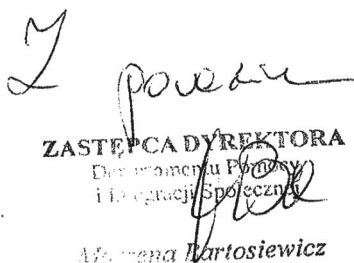 Z
ZASTĘPCA DYREKTORA
Departamentu Pomocy
i Integracji Społecznej
Bartosiewicz